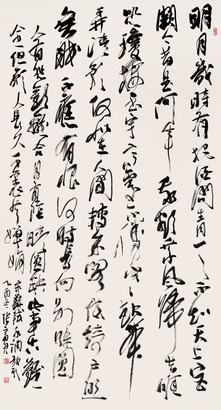 明月幾時有把酒問青天不知天上宮
闕今夕是何年我欲乘風歸去唯
恐瓊樓玉宇高處不勝寒起舞
弄清影何似在人間轉朱閣低綺戶照
無眠不應有恨何長向別時圓
人有悲歡離合月有陰晴圓缺此事古難
全但願人長久千里共嬋娟
宋蘇軾水調歌頭
乙酉